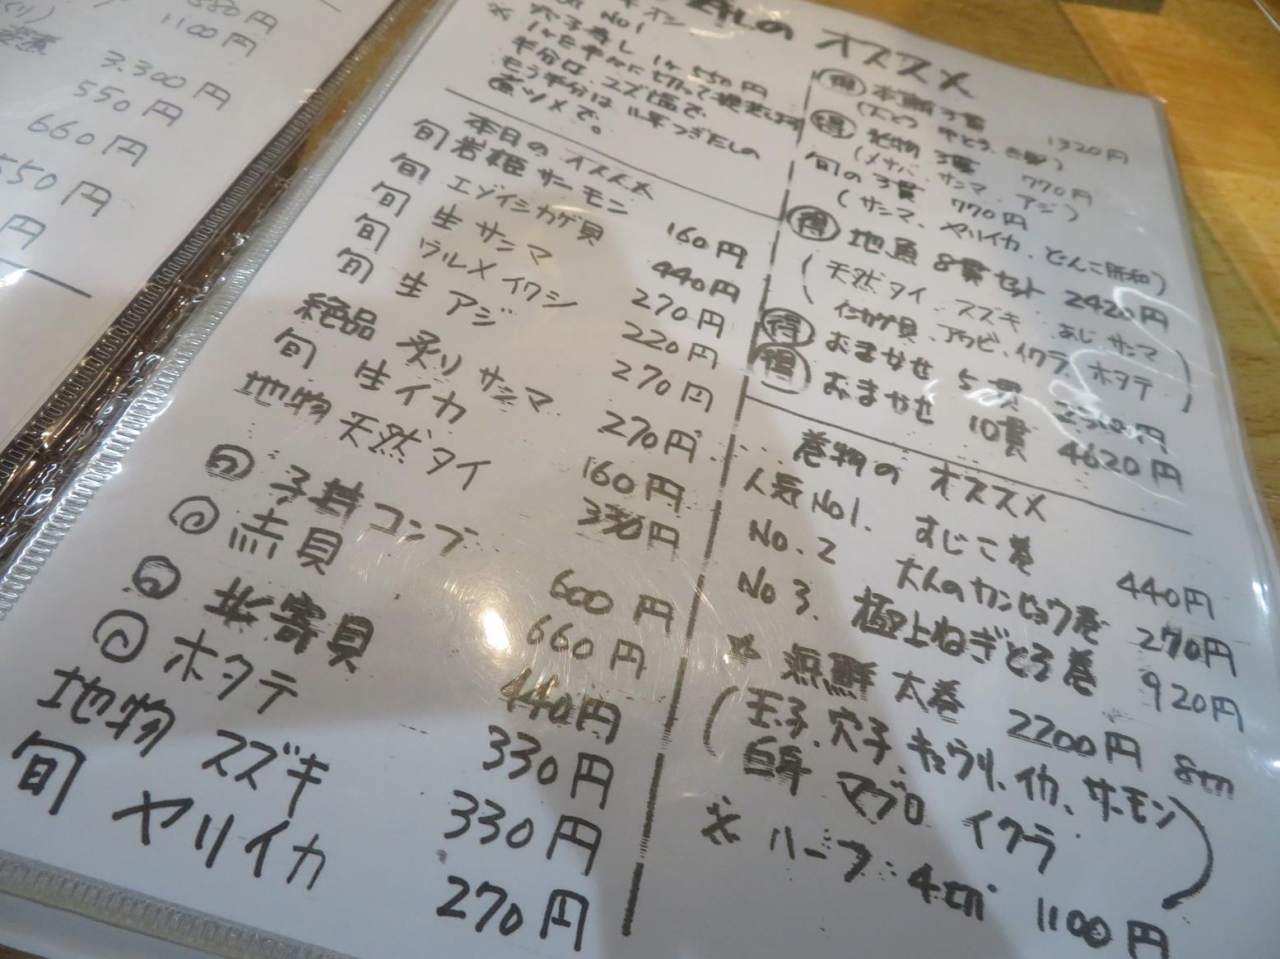 880円
1100円
3.300円
550円
660円
550円
円
オススメ
No1
※ 穴子通し 1ケ 550円
1ケを半分に切って提供します
半分は、ユズ塩で
もう半分は つぎたしの
ツメで。
本日の オススメ
旬 岩姫サーモン 160円
旬 エゾイシカゲ貝 440円
旬 生 サンマ 270円
旬 ウルメイワシ 220円
旬 生 アジ 270円
絶品 炙り サンマ 270円
旬 生イカ 160円
地物 天然タイ 330円
子持コンブ 600円
赤貝 660円
北寄貝 440円
ホタテ 330円
地物 スズキ 330円
旬 ヤリイカ 270円
得 本鮪 3貫 1320円
(大とろ 中とろ、赤身)
得 光物 3貫 770円
(サンマ、アジ)
旬の3貫 770円
(サンマ、ヤリイカ、どんこ肝和)
得 地魚 8貫セット 2420円
(天然タイ スズキ あじ サンマ
イシカゲ貝、アワビ、イクラ、ホタテ)
得 おまかせ 5貫
得 おまかせ 10貫 4620円
巻物の オススメ
人気No1. すじこ巻 440円
No.2 大人のカンピョウ巻 270円
No3. 極上ねぎとろ巻 920円
※ 海鮮太巻 2200円 8切
(玉子、穴子、キュウリ、イカ、サーモン
白身 マグロ イクラ)
※ ハーフ:4切 1100円